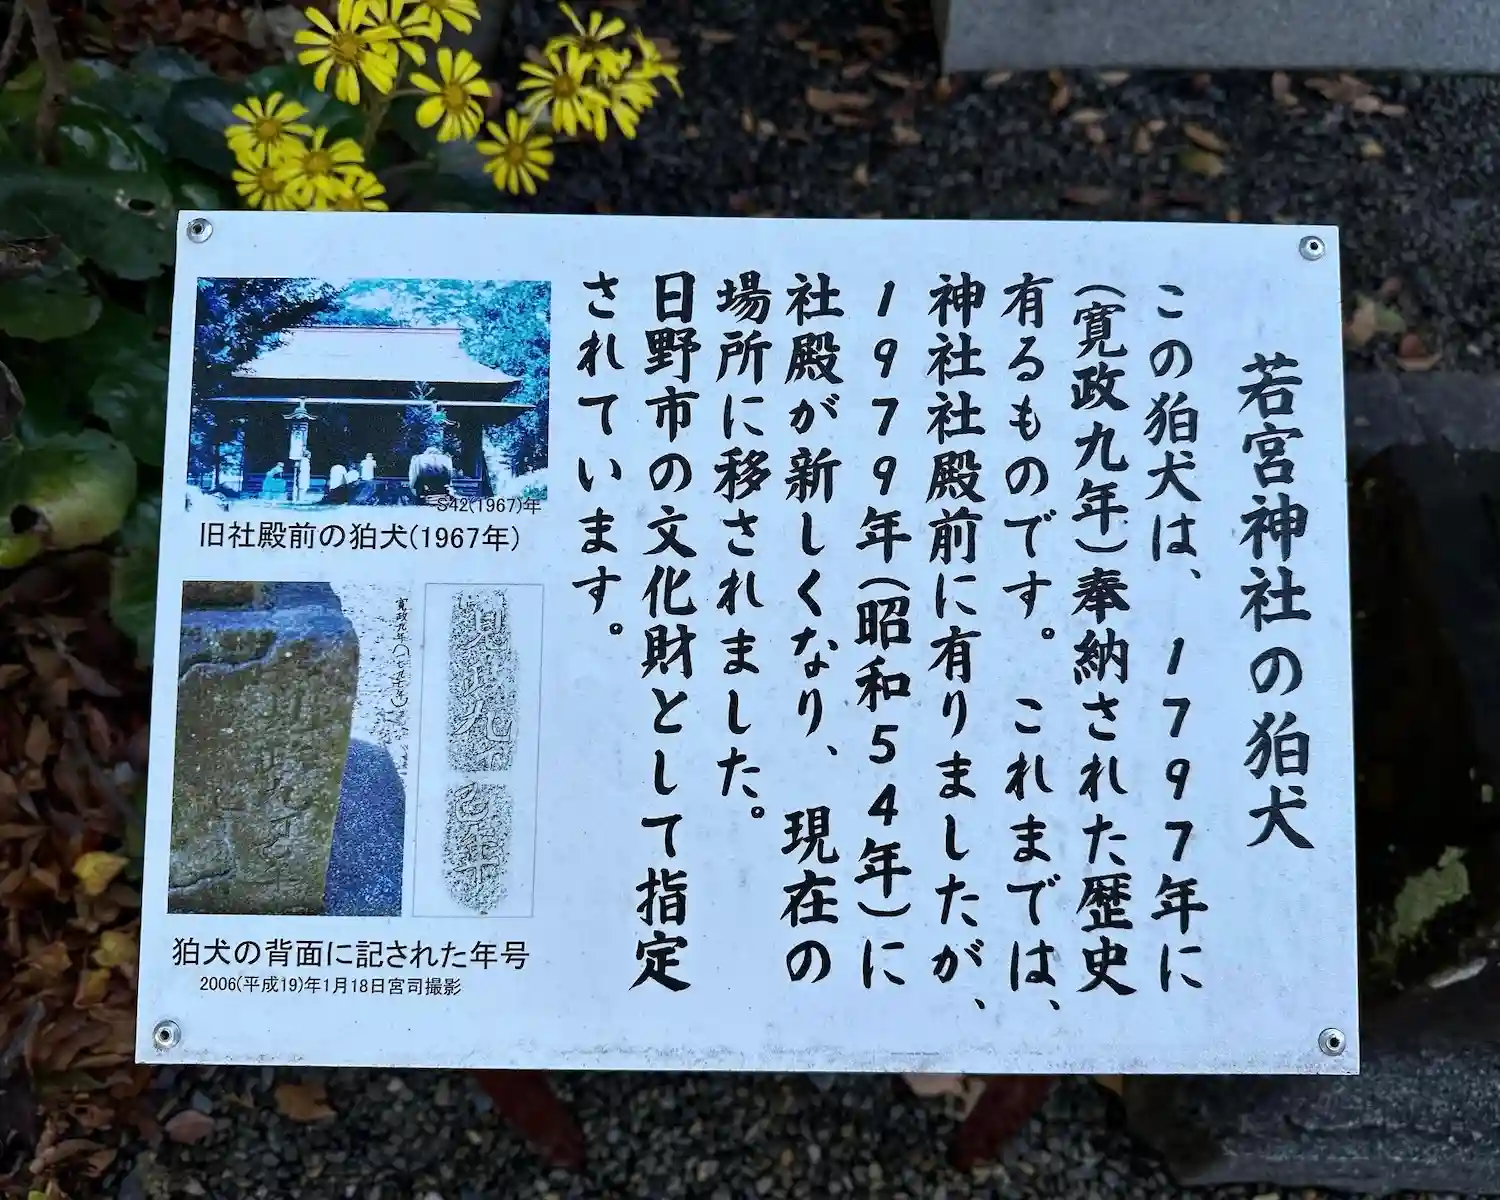 若宮神社の狛犬
この狛犬は、1797年に
(寛政九年)奉納された歴史
有るものです。これまでは、
神社社殿前に有りましたが、
1979年(昭和54年)に
社殿が新しくなり、現在の
場所に移されました。
日野市の文化財として指定
されています。
S42(1967)年
旧社殿前の狛犬(1967年)
寛政九年(一七九七年)
狛犬の背面に記された年号
2006(平成19)年1月18日宮司撮影